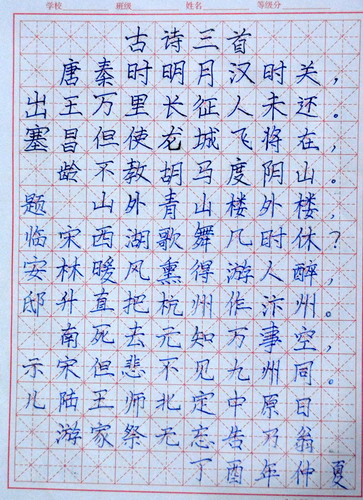 学校 班级 姓名 等级分
古诗三首
唐秦时明月汉时关，
出王万里长征人未还。
塞昌但使龙城飞将在，
龄不教胡马度阴山。
题山外青山楼外楼，
临宋西湖歌舞几时休？
安林暖风熏得游人醉，
邸升直把杭州作汴州。
南死去元知万事空，
示宋但悲不见九州同。
儿陆王师北定中原日
游家祭无忘告乃翁
丁酉年仲夏